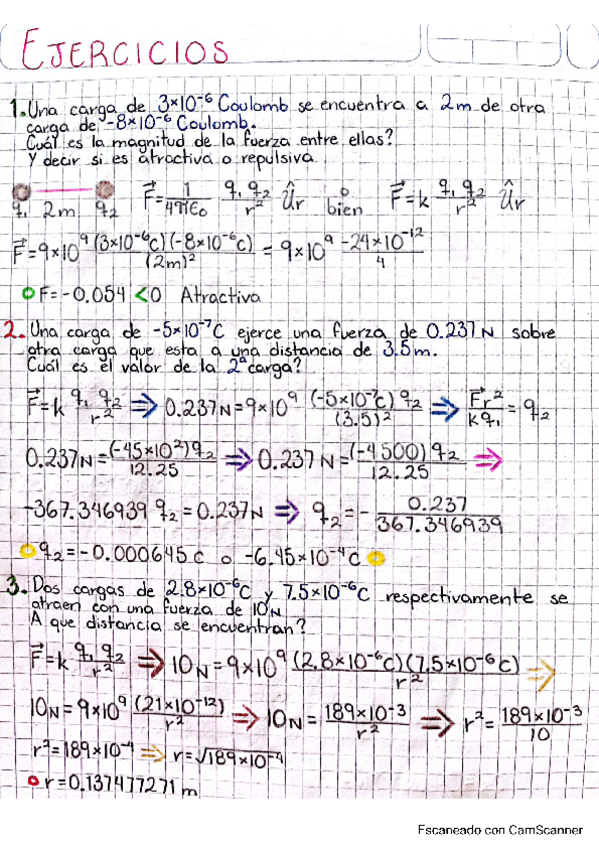 EJERCICIOS
1. Una carga de 3×10⁻⁶ Coulomb se encuentra a 2m de otra
carga de -8×10⁻⁶ Coulomb.
Cuál es la magnitud de la fuerza entre ellas?
Y decir si es atractiva o repulsiva
q₁ 2m q₂ F⃗ = 1/4πε₀ q₁ q₂/r² Ûr o bien F⃗ = k q₁ q₂/r² Ûr
F⃗ = 9×10⁹ (3×10⁻⁶C)(-8×10⁻⁶C)/(2m)² = 9×10⁹ -24×10⁻¹²/4
F = -0.054 < 0 Atractiva
2. Una carga de -5×10⁻⁷C ejerce una fuerza de 0.237N sobre
otra carga que esta a una distancia de 3.5m.
Cuál es el valor de la 2ª carga?
F⃗ = k q₁ q₂/r² ⇒ 0.237N = 9×10⁹ (-5×10⁻⁷C) q₂/(3.5)² ⇒ F⃗r²/kq₁ = q₂
0.237N = (-45×10²)q₂/12.25 ⇒ 0.237N = (-4500) q₂/12.25 ⇒
-367.346939 q₂ = 0.237N ⇒ q₂ = - 0.237/367.346939
q₂ = -0.000645 C o -6.45×10⁻⁴C
3. Dos cargas de 2.8×10⁻⁶C y 7.5×10⁻⁶C respectivamente se
atraen con una fuerza de 10N
A que distancia se encuentran?
F⃗ = k q₁ q₂/r² ⇒ 10N = 9×10⁹ (2.8×10⁻⁶C)(7.5×10⁻⁶C)/r² ⇒
10N = 9×10⁹ (21×10⁻¹²)/r² ⇒ 10N = 189×10⁻³/r² ⇒ r² = 189×10⁻³/10
r² = 189×10⁻⁴ ⇒ r = √189×10⁻⁴
r = 0.137477271 m
Escaneado con CamScanner